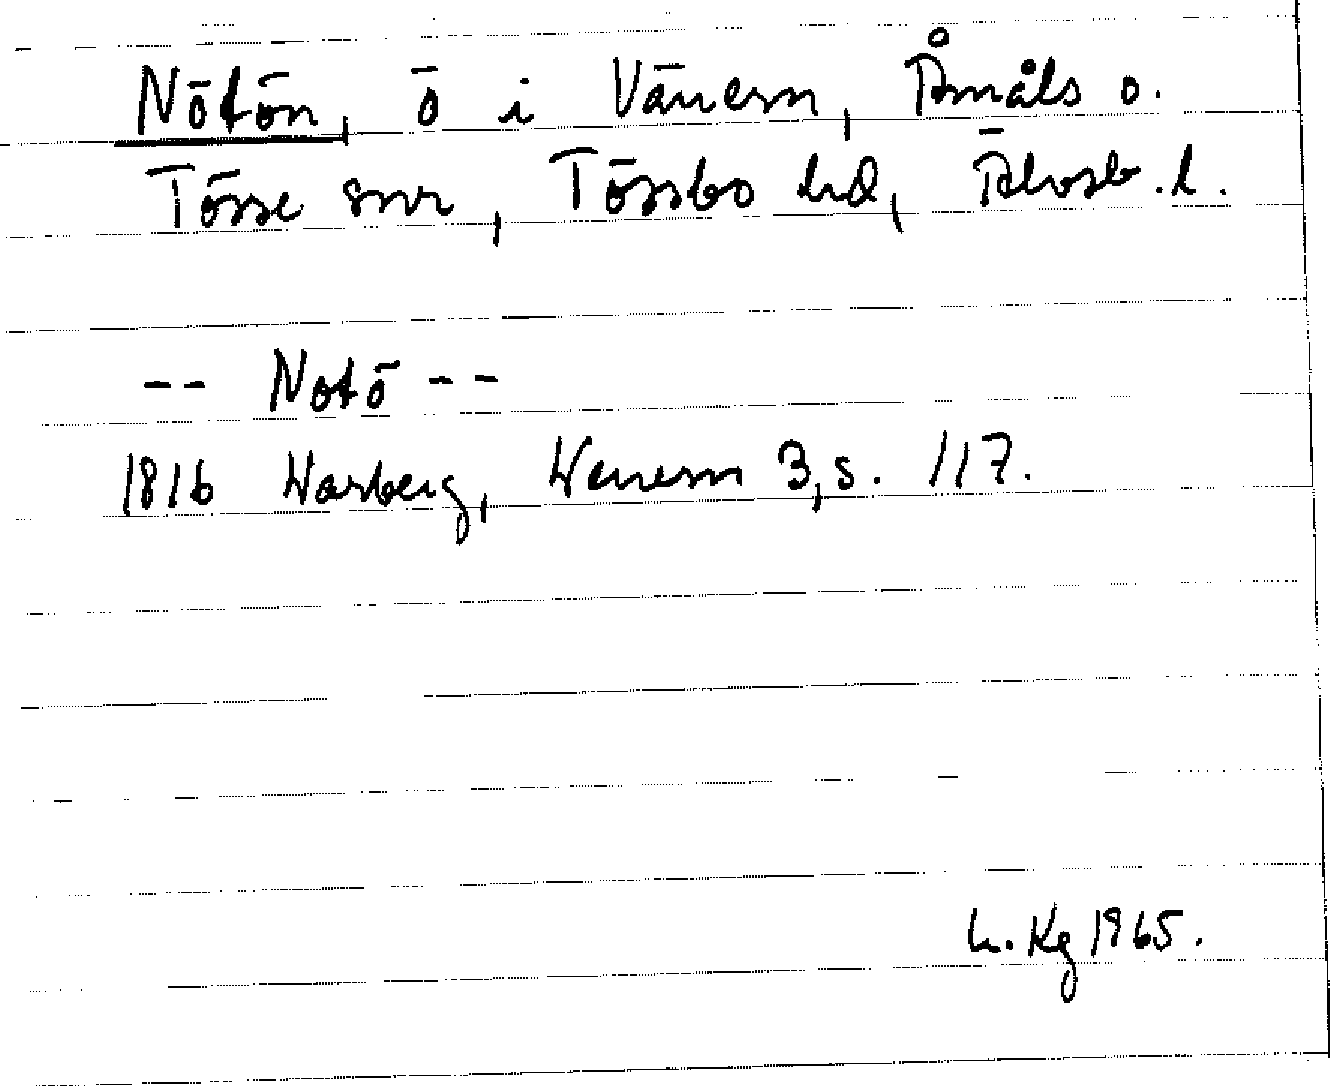 Nötön, ö i Vänern, Åmåls o.
Tösse snr, Tössbo hd, Älvsb. l.
-- Notö --
1816 Warberg, Wenern 3, s. 117.
L. Kg 1965.